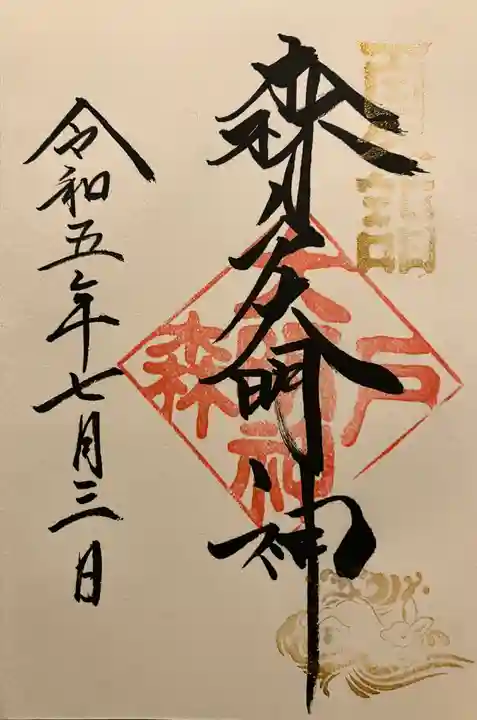 森戸大明神
森戸大明神
令和五年七月三日